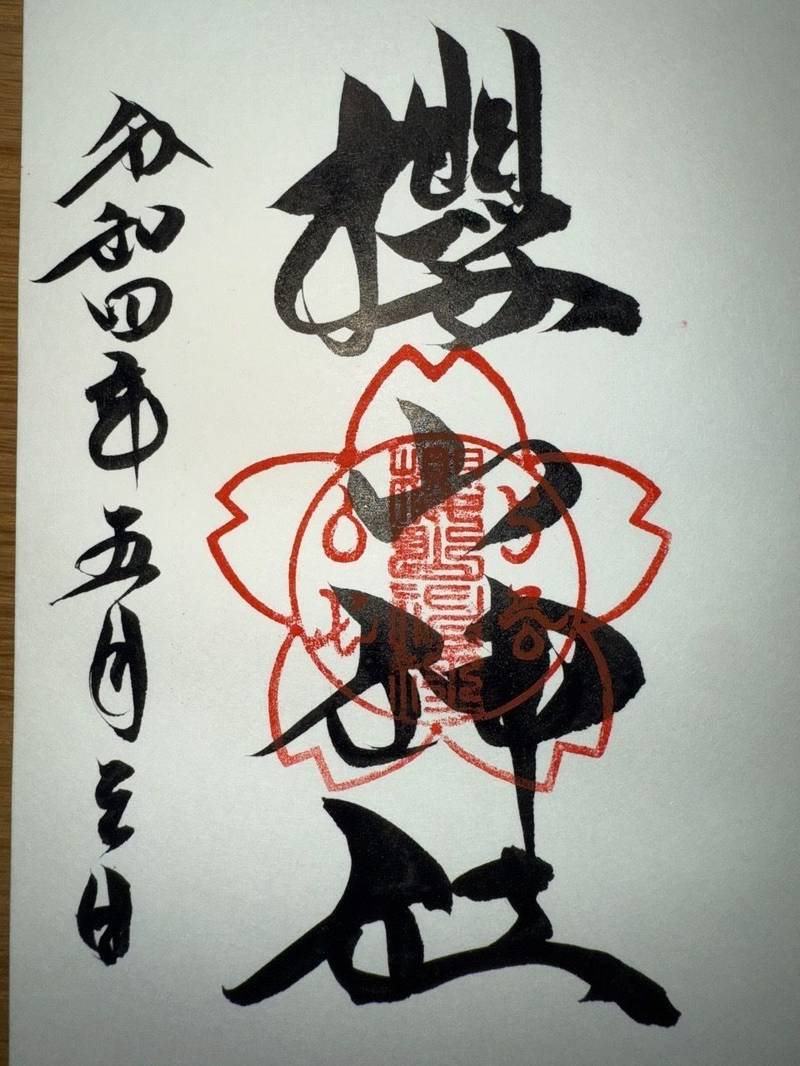 櫻山神社
令和四年五月三日